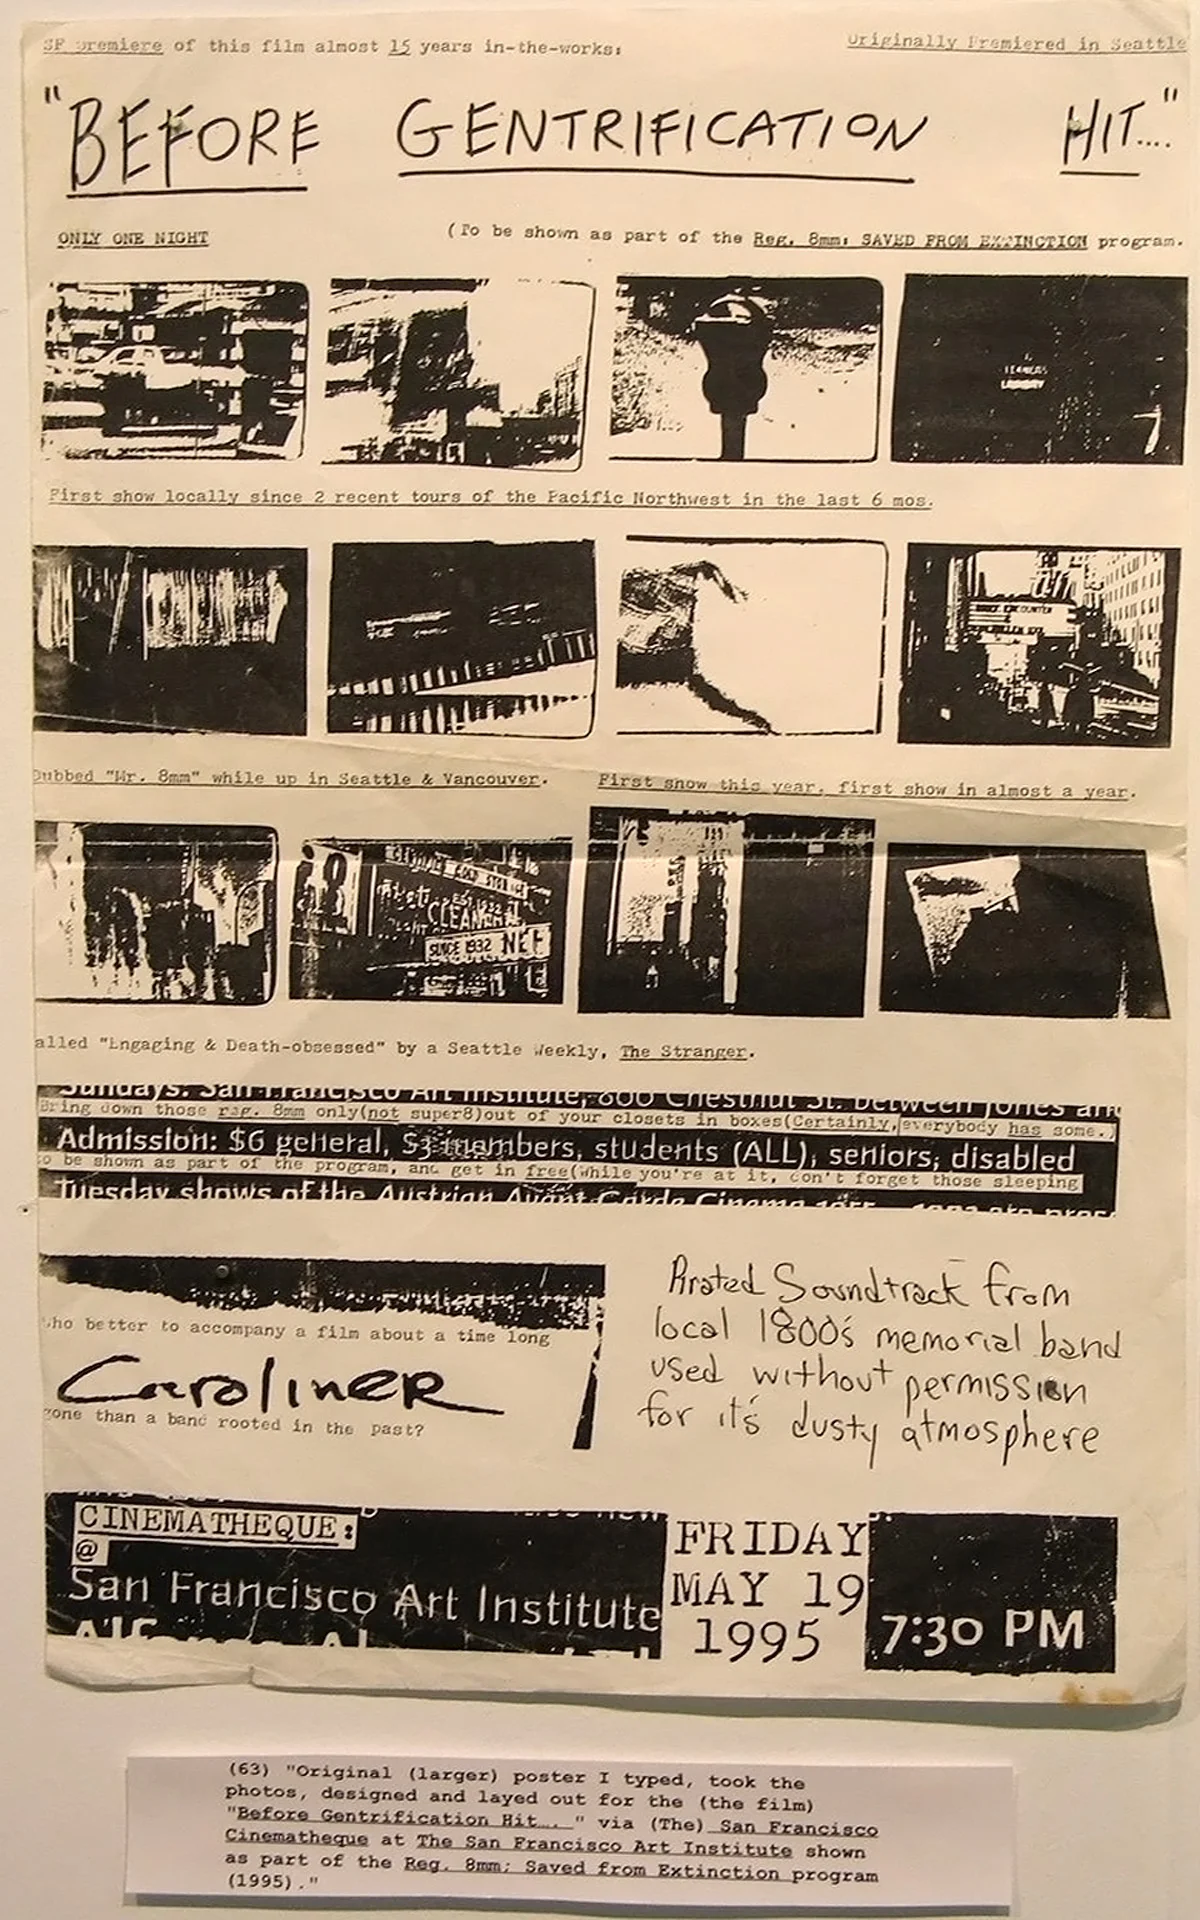 SF premiere of this film almost 15 years in-the-works:
Originally Premiered in Seattle
"BEFORE GENTRIFICATION HIT...."
ONLY ONE NIGHT
(To be shown as part of the Reg. 8mm: SAVED FROM EXTINCTION program.
LAUNDRY
First show locally since 2 recent tours of the Pacific Northwest in the last 6 mos.
BRIEF ENCOUNTER
Dubbed "Mr. 8mm" while up in Seattle & Vancouver.
First show this year, first show in almost a year.
EST. 1932
CLEAN
SINCE 1932
alled "Engaging & Death-obsessed" by a Seattle Weekly, The Stranger.
Sundays: San Francisco Art Institute, 800 Chestnut St. between Jones and
Bring down those reg. 8mm only(not super8)out of your closets in boxes(Certainly, everybody has some.)
Admission: $6 general, $3 members, students (ALL), seniors, disabled
to be shown as part of the program, and get in free(While you're at it, don't forget those sleeping
Tuesday shows of the Austrian Avant-Garde Cinema 1955
who better to accompany a film about a time long
Caroliner
gone than a band rooted in the past?
Pirated Soundtrack from
local 1800's memorial band
used without permission
for it's dusty atmosphere
CINEMATHEQUE:
@
San Francisco Art Institute
FRIDAY
MAY 19
1995
7:30 PM
(63) "Original (larger) poster I typed, took the
photos, designed and layed out for the (the film)
"Before Gentrification Hit…. " via (The) San Francisco
Cinematheque at The San Francisco Art Institute shown
as part of the Reg. 8mm; Saved from Extinction program
(1995)."